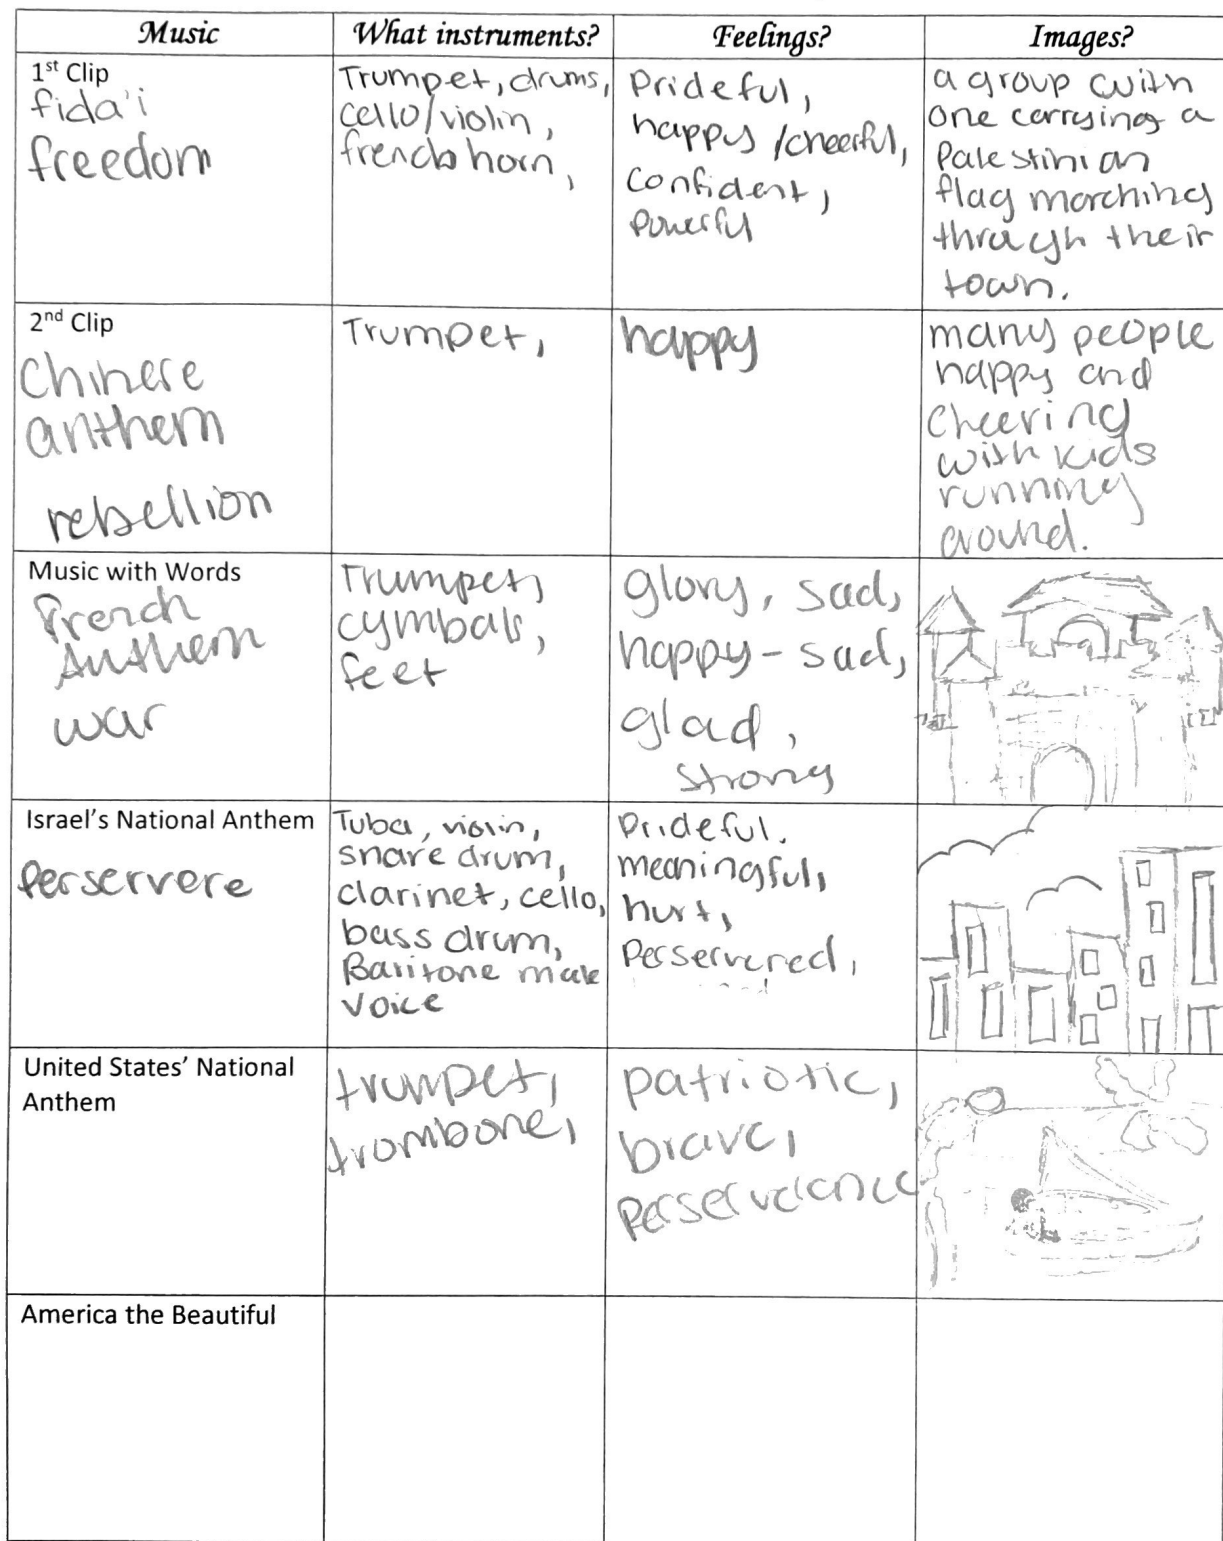 Music
What instruments?
Feelings?
Images?
1st Clip
fida'i
freedom
Trumpet, drums,
cello/violin,
french horn,
Prideful,
happy/cheerful,
confident,
Powerful
a group with
one carrying a
Palestinian
flag marching
through their
town.
2nd Clip
Chinese
anthem
rebellion
Trumpet,
happy
many people
happy and
cheering
with kids
running
around.
Music with Words
French
Anthem
war
Trumpet,
cymbals,
feet
glory, sad,
happy-sad,
glad,
strong
Israel's National Anthem
Perservere
Tuba, violin,
snare drum,
clarinet, cello,
bass drum,
Baritone male
voice
Prideful,
meaningful,
hurt,
Perservered,
United States' National
Anthem
trumpet,
trombone,
patriotic,
brave,
perserverence
America the Beautiful